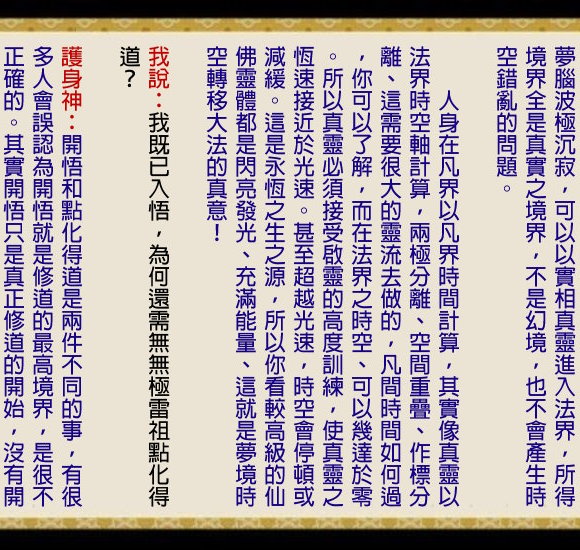 夢腦波極沉寂，可以以實相真靈進入法界，所得
境界全是真實之境界，不是幻境，也不會產生時
空錯亂的問題。
人身在凡界以凡界時間計算，其實像真靈以
法界時空軸計算，兩極分離、空間重疊、作標分
離、這需要很大的靈流去做的，凡間時間如何過
，你可以了解，而在法界之時空、可以幾達於零
。所以真靈必須接受啟靈的高度訓練，使真靈之
恆速接近於光速。甚至超越光速，時空會停頓或
減緩。這是永恆之生之源，所以你看較高級的仙
佛靈體都是閃亮發光、充滿能量、這就是夢境時
空轉移大法的真意！
我說：我既已入悟，為何還需無無極雷祖點化得
道？
護身神：開悟和點化得道是兩件不同的事，有很
多人會誤認為開悟就是修道的最高境界，是很不
正確的。其實開悟只是真正修道的開始，沒有開